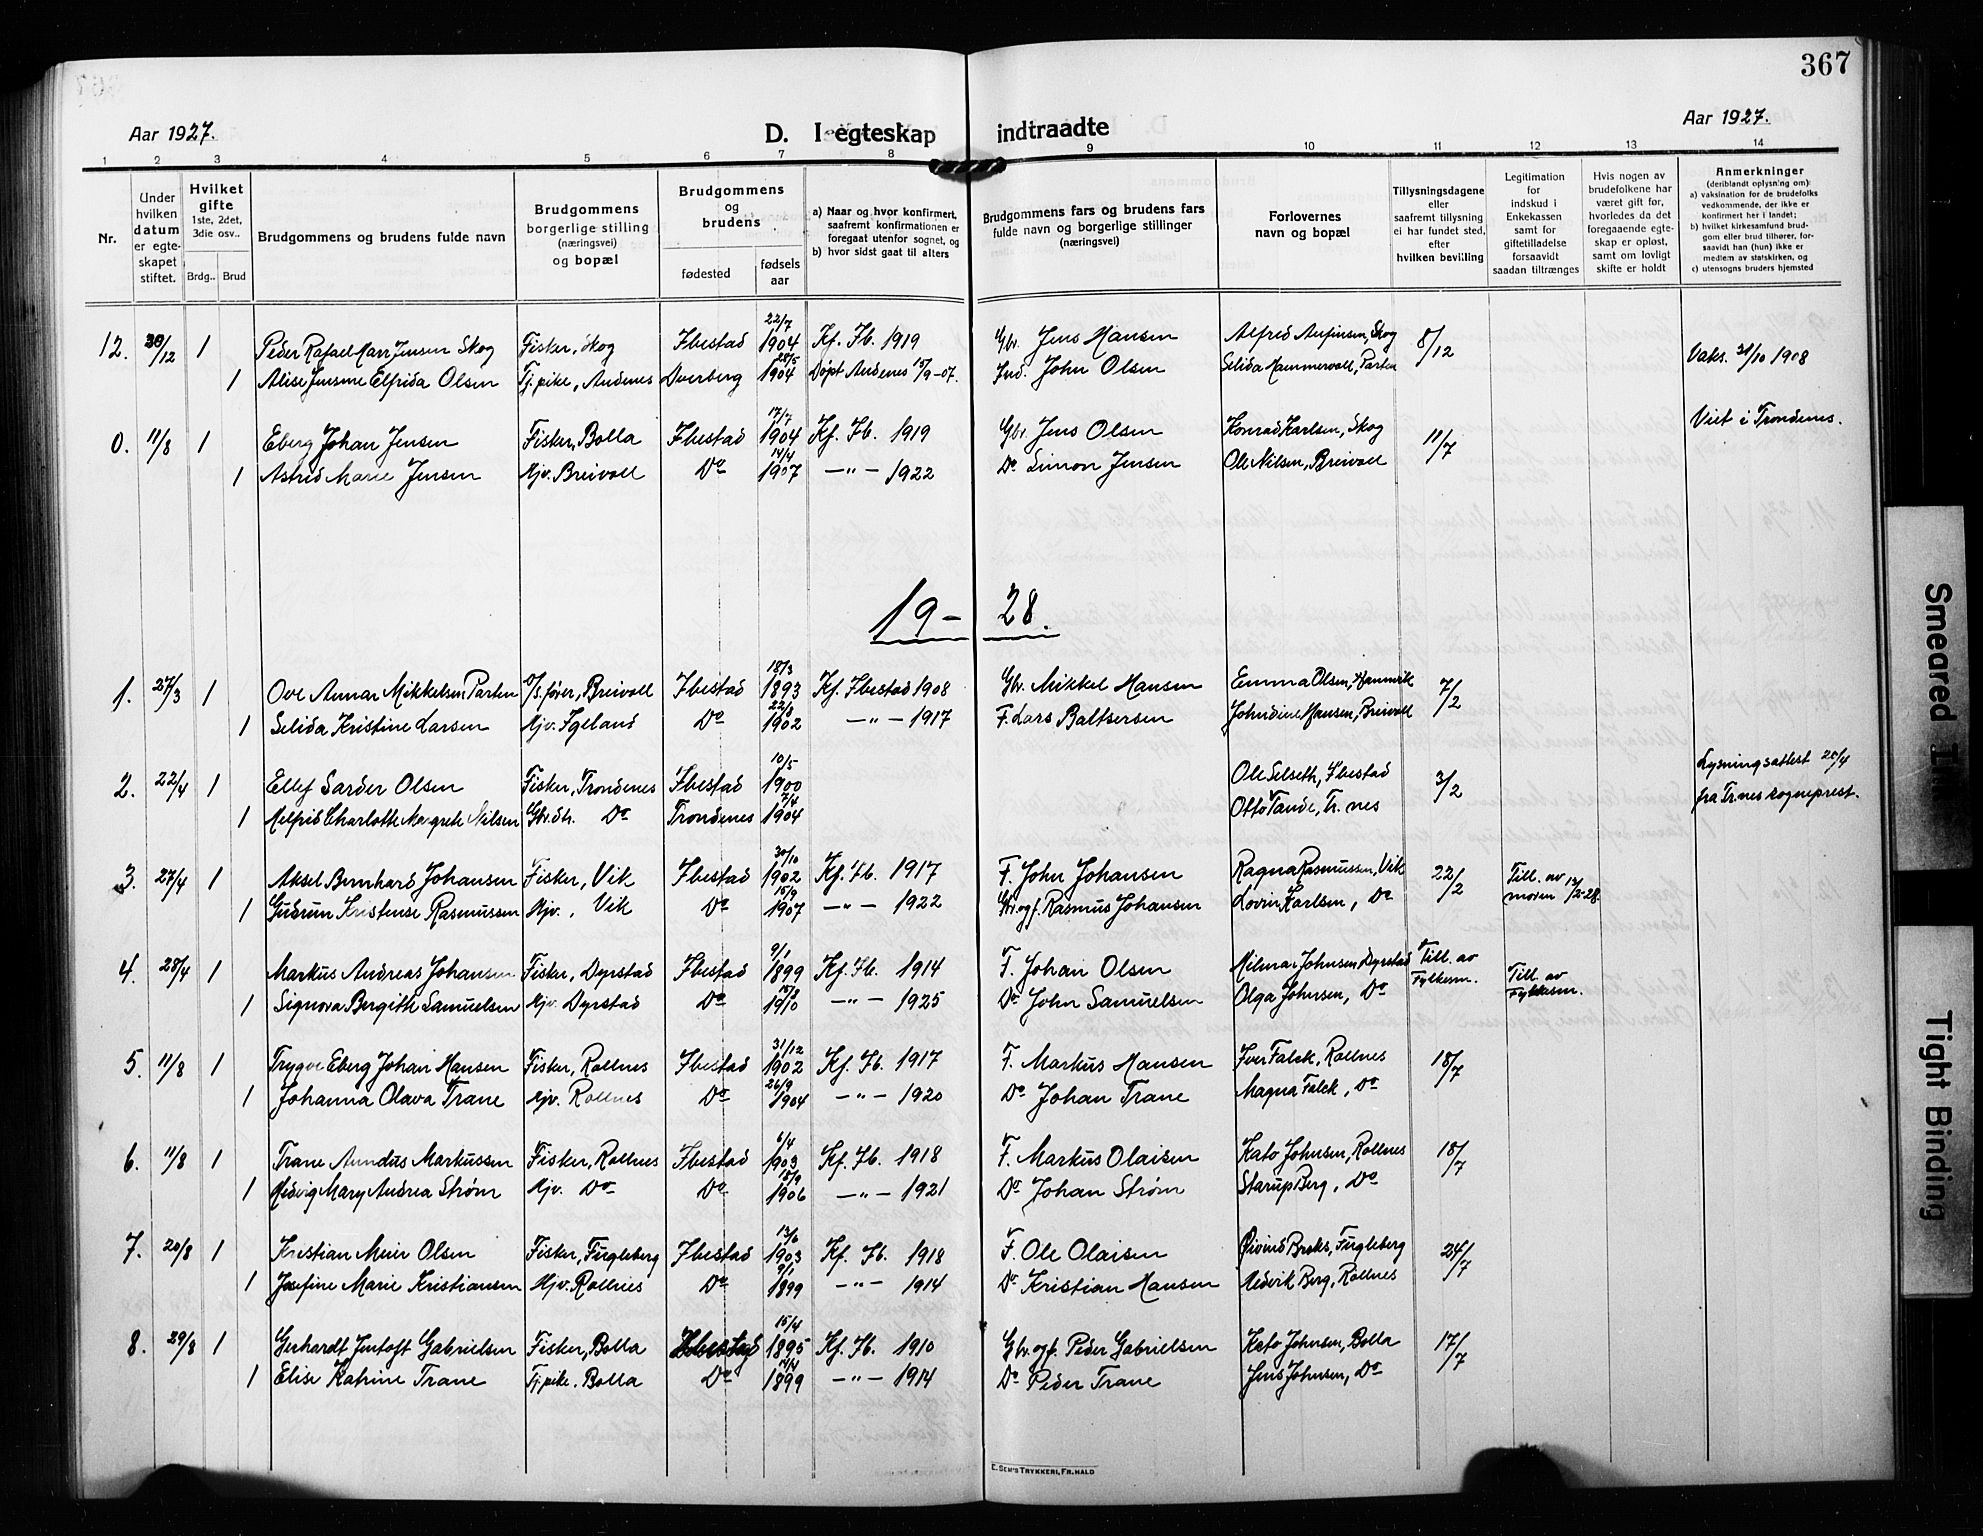 367
Aar 1927.
D. I egteskap indtraadte
Aar 1927.
1 2 3 4 5 6 7 8 9 10 11 12 13 14
Nr.
Under hvilken datum er egteskapet stiftet.
Hvilket gifte 1ste, 2det, 3die osv..
Brdg.. Brud
Brudgommens og brudens fulde navn
Brudgommens borgerlige stilling (næringsvei) og bopæl
Brudgommens og brudens
fødested
fødselsaar
a) Naar og hvor konfirmert, saafremt konfirmationen er foregaat utenfor sognet, og
b) hvor sidst gaat til alters
Brudgommens fars og brudens fars fulde navn og borgerlige stillinger (næringsvei)
Forlovernes navn og bopæl
Tillysningsdagene eller saafremt tillysning ei har fundet sted, efter hvilken bevilling
Legitimation for indskud i Enkekassen samt for giftetilladelse forsaavidt saadan tiltrænges
Hvis nogen av brudefolkene har været gift for, hvorledes da det foregaaende egteskap er opløst, samt om lovligt skifte er holdt
Anmerkninger (deriblandt oplysning om)
a) vaksination for de brudefolks vedkommende, der ikke er konfirmert her i landet;
b) hvilket kirkesamfund brudgom eller brud tilhører, forsaavidt han (hun) ikke er medlem av statskirken, og
c) utensogns bruders hjemsted
12. 30/12 1 Peder Rafael Marr Jensen Skog Fisker, Skog Ibestad 22/7 1904 Kf. Ib. 1919 Gbr. Jens Hansen Alfred Arfinsen, Skog 8/12
1 Alise Jensine Elfrida Olsen Tj.pike, Andenes Dverberg 28/5 1904 Døpt Andenes 15/9-07. Ind. John Olsen Selida Hammervoll, Parten Vaks. 31/10 1908
0. 11/8 1 Eberg Johan Jensen Fisker, Bolla Ibestad 17/7 1904 Kf. Ib. 1919 Gbr. Jens Olsen Konrad Karlsen, Skog 11/7 Viet i Trondenes.
1 Astrid Marie Jensen Hjv. Breivoll Do 14/4 1907 —"— 1922 Do Simon Jensen Ole Nilsen, Breivoll
19- 28.
1. 27/3 1 Ove Annar Mikkelsen Parten D/S. fører, Breivoll Ibestad 18/3 1893 Kf. Ibestad 1908 Gbr. Mikkel Hansen Emma Olsen, Hamnvik 7/2
1 Selida Kristine Larsen Hjv. Igeland Do 22/8 1902 —"— 1917 F. Lars Baltsersen Johndine Hansen, Breivoll
2. 22/4 1 Ellef Sarder Olsen Fisker, Trondenes Ibestad 10/5 1900 Ole Selseth, Ibestad 3/2 Lysningsattest 20/4
1 Helfrid Charlotte Margrete Nilsen Gbr.dtr. Do Trondenes 7/4 1904 Otto Tande, Tr.nes fra Tr.nes sogneprest.
3. 27/4 1 Aksel Bernhard Johansen Fisker, Vik Ibestad 30/10 1902 Kf. Ib. 1917 F. John Johansen Ragna Rasmussen, Vik 22/2 Till. av
1 Gudrun Kristense Rasmussen Hjv., Vik Do 15/9 1907 —"— 1922 Gbr. og f. Rasmus Johansen Lovin Karlsen, Do moren 12/2-28.
4. 28/4 1 Markus Andreas Johansen Fisker, Dyrstad Ibestad 9/1 1899 Kf. Ib. 1914 F. Johan Olsen Hilmar Johnsen Dyrstad Till. av Fylkesm. Till. av Fylkesm.
1 Signora Bergitte Samuelsen Hjv. Dyrstad Do 15/8 1910 —"— 1925 Do John Samuelsen Olga Johnsen, Do
5. 11/8 1 Trygve Eberg Johan Hansen Fisker, Rollnes Ibestad 31/12 1902 Kf. Ib. 1917 F. Markus Hansen Iver Falck, Rollnes 18/7
1 Johanna Olava Trane Hjv. Rollnes Do 26/9 1904 —"— 1920 Do Johan Trane Magna Falck, Do
6. 11/8 1 Trane Amndus Markussen Fisker, Rollnes Ibestad 6/4 1903 Kf. Ib. 1918 F. Markus Olaisen Kato Johnsen, Rollnes 18/7
1 Hedvig Mary Andrea Strøm Hjv. Do Do 18/9 1906 —"— 1921 Do Johan Strøm Starup Berg, Do
7. 20/8 1 Kristian Meier Olsen Fisker, Fugleberg Ibestad 13/6 1903 Kf. Ib. 1918 F. Ole Olaisen Øivind Breks, Fugleberg 24/7
1 Josefine Marie Kristiansen Hjv. Rollnes Do 9/1 1899 —"— 1914 Do Kristian Hansen Hedvik Berg, Rollnes
8. 29/8 1 Gerhardt Jentoft Gabrielsen Fisker, Bolla Ibestad 15/4 1895 Kf. Ib. 1910 Gbr. og f. Peder Gabrielsen Kato Johnsen, Bolla 17/7
1 Elise Katrine Trane Tj.pike. Bolla Do 14/4 1899 —"— 1914 Do Peder Trane Jens Johnsen, Do
E. SEM'S TRYKKERI, FR.HALD
Smeared Ink
Tight Binding